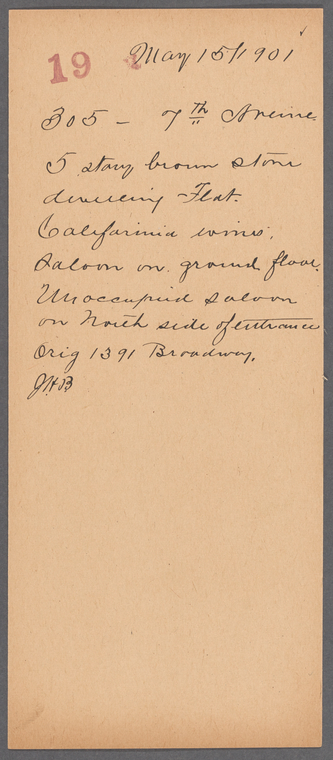 19 May 15/1901
305 - 7th Avenue
5 story brown stone
dwelling Flat.
California wines.
Saloon on ground floor.
Unoccupied saloon
on North side of entrance
Orig 1391 Broadway.
JHB